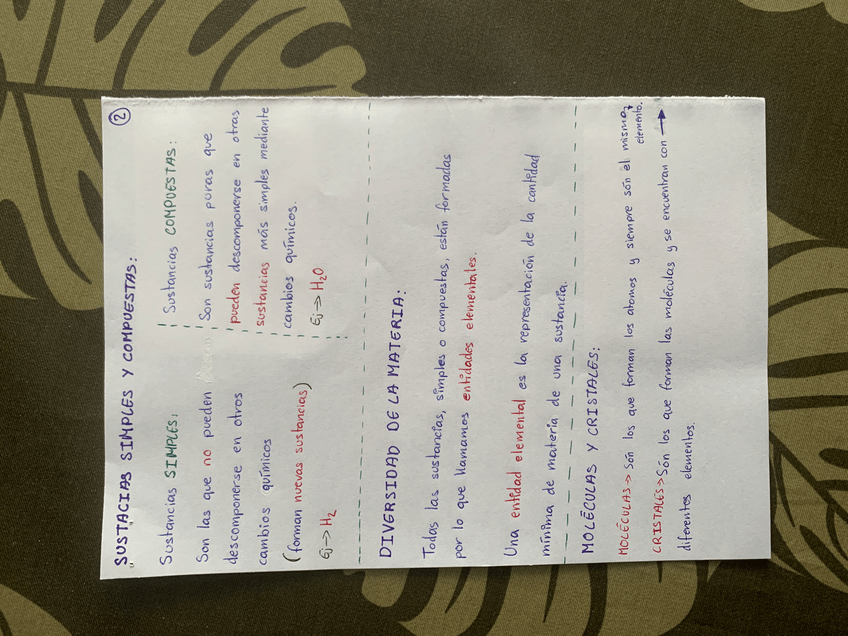 ②
SUSTACIAS SIMPLES Y COMPUESTAS:
Sustancias SIMPLES:
Son las que no pueden
descomponerse en otros
cambios químicos
(forman nuevas sustancias)
Ej -> H₂
Sustancias COMPUESTAS:
Son sustancias puras que
pueden descomponerse en otras
sustancias más simples mediante
cambios químicos.
Ej -> H₂O
DIVERSIDAD DE LA MATERIA:
Todas las sustancias, simples o compuestas, están formadas
por lo que llamamos entidades elementales.
Una entidad elemental es la representación de la cantidad
mínima de materia de una sustancia.
MOLÉCULAS Y CRISTALES:
MOLÉCULAS -> Són los que forman los atomos y siempre són el mismo
elemento.
CRISTALES -> Són los que forman las moléculas y se encuentran con →
diferentes elementos.